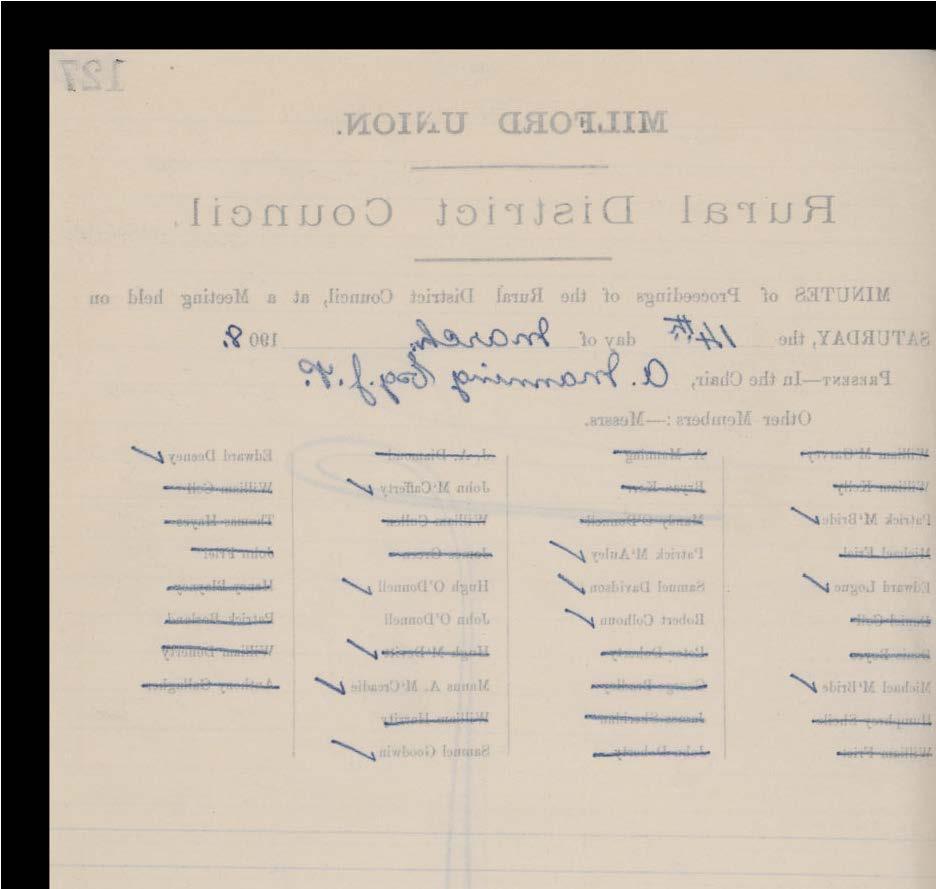 127
MILFORD UNION.
Rural District Council.
MINUTES of Proceedings of the Rural District Council, at a Meeting held on
SATURDAY, the 14th day of March 1908.
PRESENT—In the Chair, A. Manning Esq. J.P.
Other Members:—Messrs.
William M'Garvey
William Kelly
Patrick M'Bride
Michael Friel
Edward Logue
Daniel Coll
Denis Boyce
Michael M'Bride
Humphrey Shiels
William Friel
A. Manning
Bryan Kerr
O'Donnell
Patrick M'Auley
Samuel Davidson
Robert Colhoun
Peter Doherty
George Bradley
James Sheridan
John Doherty
J. A. Diamond
John M'Cafferty
William Cullen
James Green
Hugh O'Donnell
John O'Donnell
Hugh M'Devitt
Manus A. M'Creadie
William Herrity
Samuel Goodwin
Edward Deeney
William Coll
Thomas Hayes
John Friel
Patrick
William Doherty
Anthony Gallagher